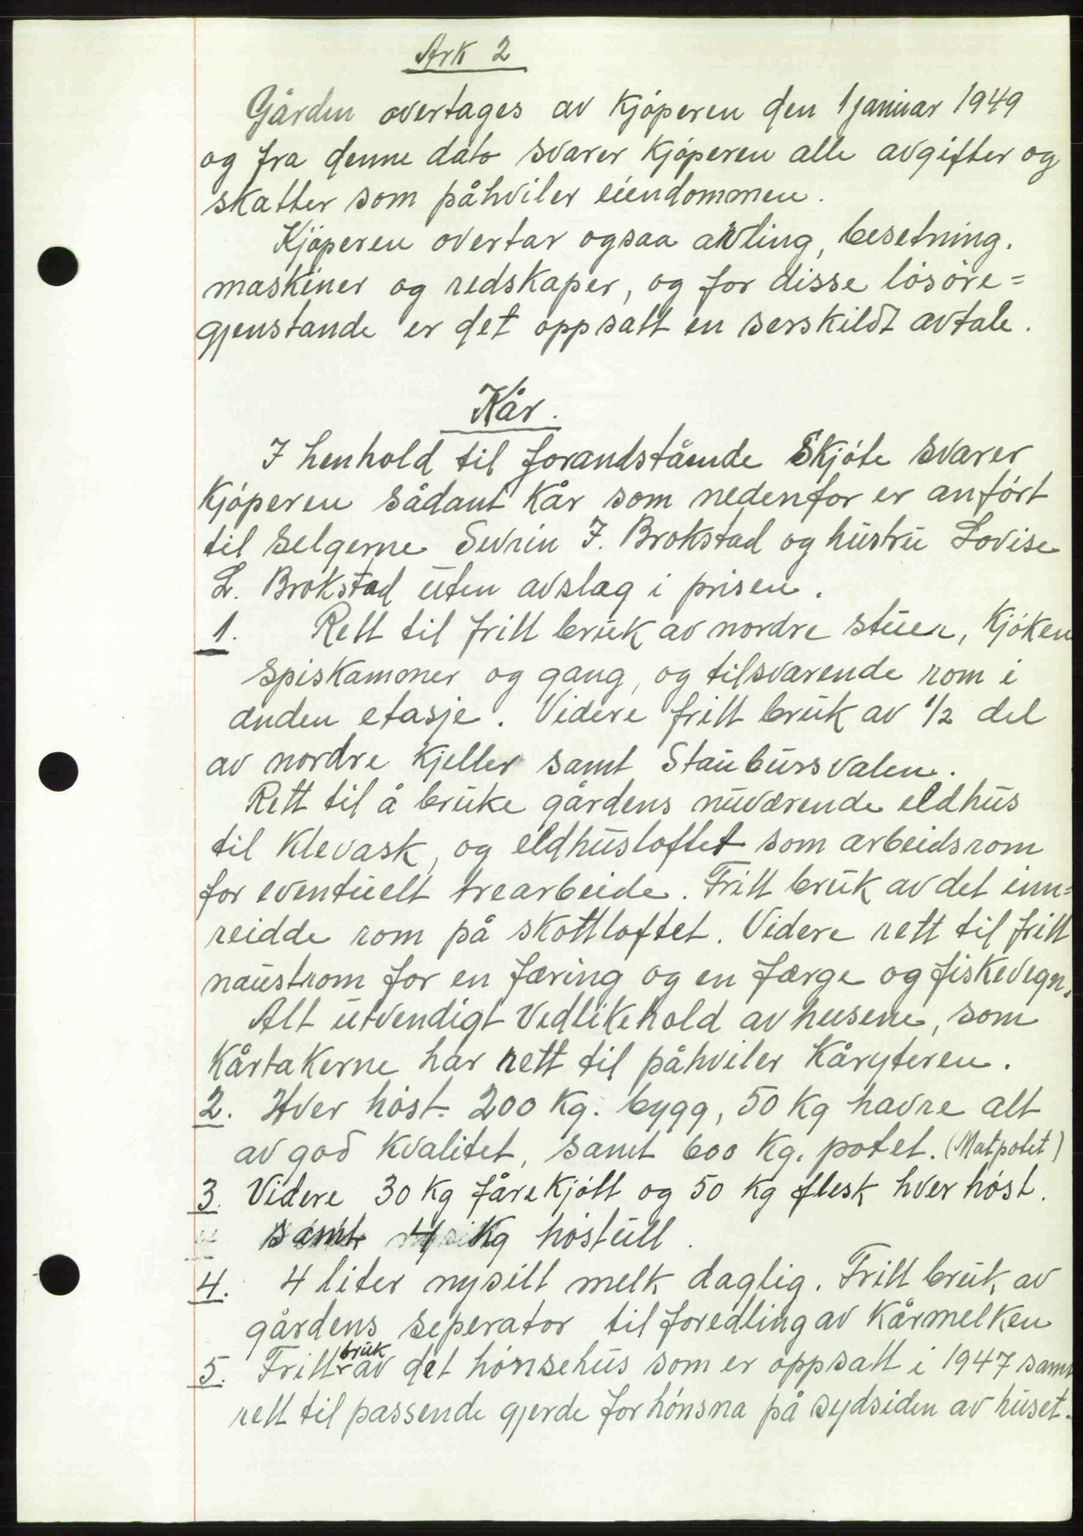 Ark 2
Gården overtages av kjøperen den 1 januar 1949
og fra denne dato svarer kjøperen alle avgifter og
skatter som påhviler eiendommen.
Kjøperen overtar ogsaa avling, besetning.
maskiner og redskaper, og for disse løsøre=
gjenstande er det oppsatt en serskildt avtale.
Kår.
I henhold til forandstående Skjøte svarer
kjøperen sådant kår som nedenfor er anført
til selgerne Sevrin J. Brokstad og hustru Lovise
L. Brokstad uten avslag i prisen.
1. Rett til fritt bruk av nordre stuer, kjøken
spiskammer og gang, og tilsvarende rom i
anden etasje. Videre fritt bruk av 1/2 del
av nordre kjeller samt Staubursvalen.
Rett til å bruke gårdens nuværende eldhus
til klevask, og eldhusloftet som arbeidsrom
for eventuelt trearbeide. Fritt bruk av det inn=
reidde rom på skottloftet. Videre rett til fritt
naustrom for en færing og en færge og fiskevegn.
Alt utvendigt vedlikehold av husene, som
kårtakerne har rett til påhviler kåryteren.
2. Hver høst 200 kg. bygg, 50 kg havre alt
av god kvalitet, samt 600 kg. potet. (Matpotet)
3. Videre 30 kg fårekjøtt og 50 kg flesk hver høst.
samt 4 kg høstull.
4. 4 liter nysilt melk daglig. Fritt bruk av
gårdens seperator til foredling av kårmelken
5. Fritt bruk av det hønsehus som er oppsatt i 1947 samt
rett til passende gjerde for hønsna på sydsiden av huset.